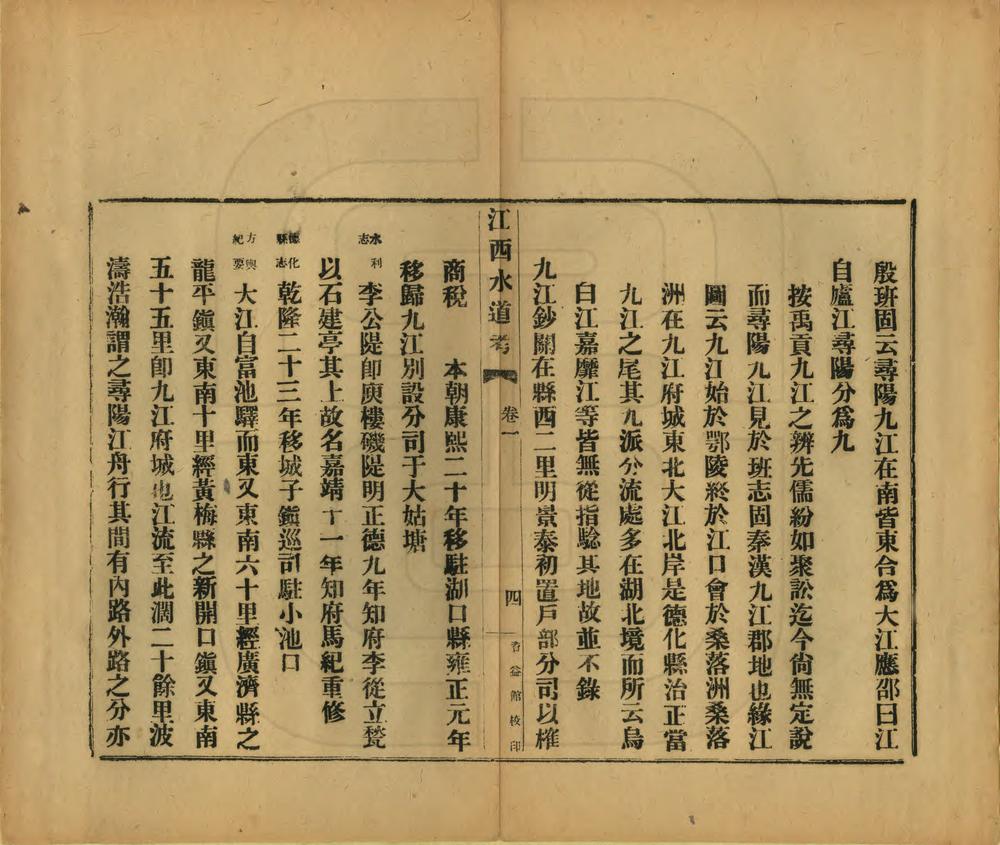 殷班固云尋陽九江在南皆東合爲大江應邵曰江
自廬江尋陽分爲九
按禹貢九江之辨先儒紛如聚訟迄今尙無定說
而尋陽九江見於班志固秦漢九江郡地也緣江
圖云九江始於鄂陵終於江口會於桑落洲桑落
洲在九江府城東北大江北岸是德化縣治正當
九江之尾其九派分流處多在湖北境而所云烏
白江嘉靡江等皆無從指騐其地故並不錄
九江鈔關在縣西二里明景泰初置戶部分司以榷
江西水道考 卷一 四 香益館校印
商稅 本朝康熙二十年移駐湖口縣雍正元年
移歸九江別設分司于大姑塘
水利志 李公隄卽庾樓磯隄明正德九年知府李從立甃
以石建亭其上故名嘉靖十一年知府馬紀重修
德化縣志 乾隆二十三年移城子鎭巡司駐小池口
方輿紀要 大江自富池驛而東又東南六十里經廣濟縣之
龍平鎭又東南十里經黃梅縣之新開口鎭又東南
五十五里卽九江府城也江流至此濶二十餘里波
濤浩瀚謂之尋陽江舟行其間有內路外路之分亦